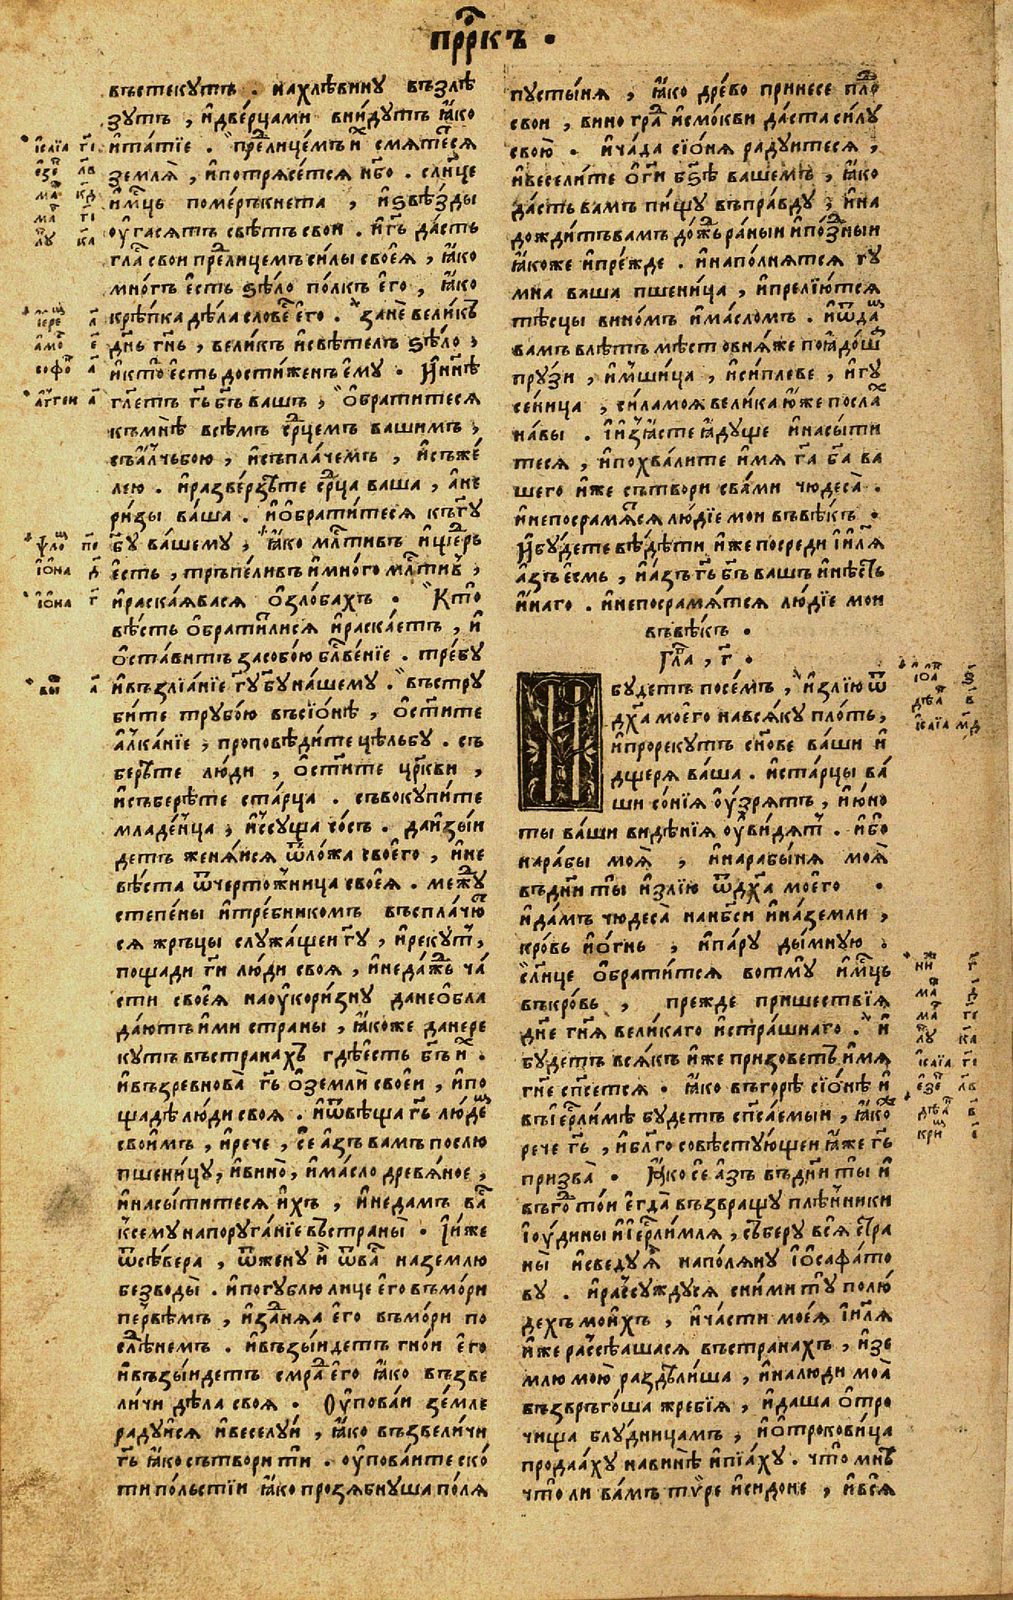 прⷪ҇ркъ .
въстекутъ . инахлѣвину възлѣ
зутъ , ідве́рцами вни́дутъ ꙗ҆́ко
ита́тїе . преⷣлице́мъ иⷯ смяте́ся
землѧ̀ , ипотрясе́тся не́бо . сл҃нце
имцⷭ҇ъ поме́ръкнета , иѕвѣ́зды
оу҆гасятъ свѣ́тъ свои . игь҃ да́стъ
гла́ⷭ свои преⷣлицемъ си́лы своеѧ̀ , ꙗ҆́ко
мно́гъ е҆́сть ѕѣ́ло по́лкъ е҆го , ꙗ҆́ко
крѣ́пка дѣ́ла слове́ⷭ е҆го . занѐ вели́къ
дн҃ь гн҃ь , вели́къ исвѣ́телъ ѕѣ́ло ,
икто̀ е҆́сть достиженъ е҆му . Инн҃ѣ
гл҃етъ гь҃ бг҃ъ вашъ , ѻ҆брати́теся
къмнѣ̀ всѣмъ срⷣцемъ вашимъ ,
съа҆́лчьбою , исъпла́чемъ , исъжѐ
лею . иразве́рзѣте срⷣца ваша , ане
ри́зы ва́ша . иѻ҆брати́теся къгу҃
бу҃ ва́шему , ꙗ҆́ко млⷭ҇тивъ ище́ⷣръ
е҆́сть , тръпели́въ имно́го млⷭ҇тивъ ,
ираска́явася ѻ҆зло́бахъ . Кто̀
вѣ́сть ѻ҆брати́лися ираска́етъ , и҆
ѻ҆ста́витъ засобо́ю блⷭ҇ве́нїе . тре́бу
ивъзлїа́нїе гу҃ бу҃ на́шему . въстру
би́те трубо́ю въсїо́нѣ , ѻ҆ст҃и́те
а҆лка́нїе , проповѣ́дите цѣльбу . съ
берѣ́те лю́ди , ѻ҆ст҃и́те цр҃кви ,
исъбере́те ста́рца . съвокупи́те
младе́нца , иссу́ща со́съ . даизы́и
детъ жени́йся ѿло́жа своего , ине
вѣ́ста ѿчерто́жница своеѧ̀ . меⷤду
степе́ны итре́бникомъ въспла́чюⷮ
ся жръцы служа́щеи гу҃ , ирекуⷮ ,
пощади гⷭ҇и лю́ди своя , инеда́жⷣь ча́
сти своеѧ̀ нао҆укори́зну данеѻ҆бла
да́ютъ и҆ми страны , ꙗ҆́коже данере
кутъ въстрана́хъ гдѣ́есть бг҃ъ иⷯ .
ивъзревнова̀ гь҃ ѻ҆землѝ свое́и , ипо
щадѣ̀ лю́ди своя . иѿвѣща̀ гь҃ лю́деⷨ
свои́мъ , ирече , се́ а҆зъ вамъ послю
пшени́цу , ивино̀ , има́сло древя́ное ,
инасы́титеся и҆хъ , инедамъ ваⷭ
ксему напоруга́нїе въстраны̀ . Ии́же
ѿсѣ́вера , ѿжену иⷯ ѿваⷭ наземлю
безводы̀ . ипогу́блю лице е҆го въмо́ри
пе́рвѣмъ , иза́дняа е҆го въмо́ри по
слѣ́днемъ . ивъзы́идетъ гно́и е҆го
ивъзы́идетъ смра́ⷣ е҆го ꙗ҆́ко възве
ли́чи дѣ́ла своя . Оу҆пова́и зе́мле
ра́дуйся ивеселуй , ꙗ҆́ко възвели́чи
гь҃ ꙗ҆́ко сътвори́ти . оу҆пова́ите ско́
ти по́льстїи ꙗ҆́ко прозя́бнуша по́ля
пусты́ня , ꙗ҆́ко дре́во принесе плоⷣ
свои , вино граⷣ исмо́кви да́ста си́лу
свою̀ . ича́да сїо́ня ра́дуитеся ,
ивесели́те ѻ҆гⷭ҇и бѕ҃ѣ вашемъ , ꙗ҆́ко
да́стъ вамъ пи́щу въпра́вду , ина
дожди́тъ вамъ до́жⷣь ра́ныи ипо́зⷣныи
ꙗ҆́коже ипре́жде . инапо́лнятся гу
мна ваша пшени́ца , ипрелїю́тся
тѣ́сцы вино́мъ има́сломъ . иѿда́мъ
вамъ влѣтъ мѣ́ст овня́же поꙗ҆до́шⷶ
пру́зи , имши́ца , исиплеве , игу
се́ница , си́ламоя вели́ка ю҆́же посла́ⷯ
на́вы . Иизꙗ҆сте ꙗ҆дуще инасы́ти
теся , ипохва́лите имя гⷭ҇а ба҃ ва
шего иже сътвори сва́ми чюдеса̀ .
инепосрамя́тся лю́дїе мои въвѣ́къ .
Ибу́дете вѣ́дѣти иже посреди і҆и҃ля
а҆зъ е҆смь , иа҆зъ гь҃ бг҃ъ вашъ инѣ́сть
и҆на́го . инепосрамя́тся лю́дїе мои
въвѣ́къ .
Гла́ⷡ , г҃ .
И будетъ посе́мъ , излїю ѿ
дх҃а мое́го нався́ку пло́ть ,
ипрореку́тъ сн҃ове ва́ши и҆
дщеря ва́ша . иста́рцы ва́
ши со́нїя оу҆́зрятъ , ию́но
ты ва́ши видѣ́нїя оу҆ви́дятъ . ибо
нарабы̀ моѧ̀ , инарабы́ня моѧ̀
въдн҃и ты̀и излїю ѿдх҃а мое́го .
ида́мъ чюдеса̀ нанб҃си ина́земли ,
кро́вь ио҆́гнь , ипа́ру ды́мную .
сл҃нце ѻ҆брати́тся вотму̀ имцⷭ҇ъ
въкро́вь , прежде пришествїя
дн҃е гн҃я вели́каго истра́шнаго . И
бу́детъ вся́къ иже призове́тъ имя
гн҃е спⷭ҇ется . ꙗ҆́ко въгорѣ̀ сїо́нѣ и҆
въіеⷬ҇ли́мѣ бу́детъ спⷭ҇а́емыи , ꙗ҆́коⷤ
рече гь҃ , иблг҃о совѣсту́ющеи ꙗ҆́же гь҃
призва̀ . Ꙗ҆́ко се́ а҆зъ въдн҃и ты̀и
въго́ⷣ то́и е҆гда̀ възвращу плѣ́нники
і҆у́дины иіеⷬ҇ли́мля , съберу вся̀ стра
ны̀ исведу́ⷯ напо́ляну і҆ѻсафа́то
ву . ирассу́ждуся сни́ми ту̀ о лю́
дехъ мои́хъ , ича́сти моеѧ̀ і҆и҃ля
иже рассѣ́яшася въстрана́хъ , изе
млю мою раздѣли́ша , иналю́ди моѧ̀
възвръго́ша жре́бїя , ида́ша ѻ҆тро
чища блу́дницамъ , иѻ҆трокови́ца
прода́аху навинѣ̀ ипїа́ху . что̀ мнѣ̀
что̀ ли ва́мъ ти́ре исидо́не , ився̀